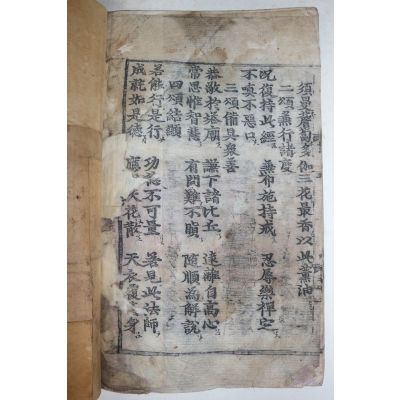 須曼薝蔔多伽三花最香以此薰油
二頌兼行諸度
況復持此經 兼布施持戒 忍辱樂禪定
不嗔不惡口
三頌備具衆善
恭敬於塔廟 謙下諸比丘 遠離自高心
常思惟智慧 有問難不嗔 隨順為解說
四頌結顯
若能行是行 功德不可量 若見此法師
成就如是德 應天花散 天衣覆身